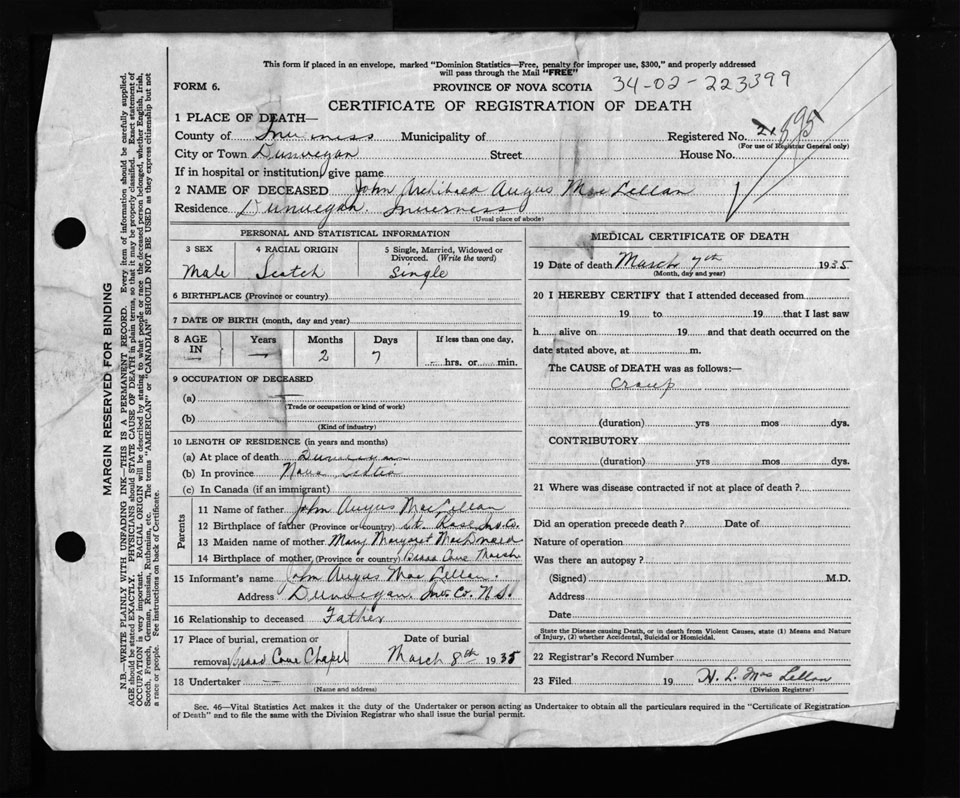 This form if placed in an envelope, marked "Dominion Statistics—Free, penalty for improper use, $300," and properly addressed
will pass through the Mail "FREE"
FORM 6. PROVINCE OF NOVA SCOTIA 34-02-223399
CERTIFICATE OF REGISTRATION OF DEATH
1 PLACE OF DEATH—
County of Inverness Municipality of Registered No. 595
(For use of Registrar General only)
City or Town Dunvegan Street House No.
If in hospital or institution, give name
2 NAME OF DECEASED John Archibald Angus MacLellan
Residence Dunvegan. Inverness
(Usual place of abode)
PERSONAL AND STATISTICAL INFORMATION
3 SEX 4 RACIAL ORIGIN 5 Single, Married, Widowed or Divorced. (Write the word)
Male Scotch Single
6 BIRTHPLACE (Province or country)
7 DATE OF BIRTH (month, day and year)
8 AGE IN Years Months Days If less than one day,
— 2 7 hrs. or min.
9 OCCUPATION OF DECEASED
(a)
(Trade or occupation or kind of work)
(b)
(Kind of industry)
10 LENGTH OF RESIDENCE (in years and months)
(a) At place of death Dunvegan
(b) In province Nova Scotia
(c) In Canada (if an immigrant)
Parents
11 Name of father John Angus MacLellan
12 Birthplace of father (Province or country) St. Rose Inv. Co.
13 Maiden name of mother Mary Margaret MacDonald
14 Birthplace of mother (Province or country) Broad Cove Marsh
15 Informant's name John Angus MacLellan.
Address Dunvegan. Inv. Co. N.S.
16 Relationship to deceased Father
17 Place of burial, cremation or Date of burial
removal Broad Cove Chapel March 8th 1935
18 Undertaker —
(Name and address)
MEDICAL CERTIFICATE OF DEATH
19 Date of death March 7th 1935
(Month, day and year)
20 I HEREBY CERTIFY that I attended deceased from
19 to 19 that I last saw
h alive on 19 and that death occurred on the
date stated above, at m.
The CAUSE of DEATH was as follows:—
Croup
(duration) yrs mos dys.
CONTRIBUTORY
(duration) yrs mos dys.
21 Where was disease contracted if not at place of death?
Did an operation precede death? Date of
Nature of operation
Was there an autopsy?
(Signed) M.D.
Address
Date
State the Disease causing Death, or in death from Violent Causes, state (1) Means and Nature
of Injury, (2) whether Accidental, Suicidal or Homicidal.
22 Registrar's Record Number
23 Filed 19 H. L. MacLellan
(Division Registrar)
Sec. 46—Vital Statistics Act makes it the duty of the Undertaker or person acting as Undertaker to obtain all the particulars required in the "Certificate of Registration
of Death" and to file the same with the Division Registrar who shall issue the burial permit.
MARGIN RESERVED FOR BINDING
N.B.—WRITE PLAINLY WITH UNFADING INK—THIS IS A PERMANENT RECORD. Every item of information should be carefully supplied.
AGE should be stated EXACTLY. PHYSICIANS should STATE CAUSE OF DEATH in plain terms, so that it may be properly classified. Exact statement of
OCCUPATION is very important. RACIAL ORIGIN will be described by stating to what people or race the deceased person belonged, whether English, Irish,
Scotch, French, German, Russian, Ruthenian, etc. The terms "AMERICAN" or "CANADIAN" SHOULD NOT BE USED as they express citizenship but not
a race or people. Fee instructions on back of Certificate.